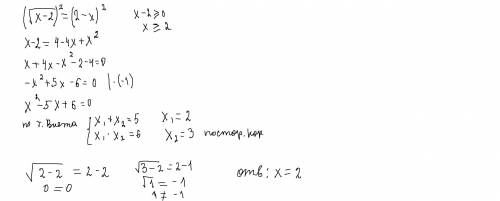 (√x-2)² = (2-x)²
x-2 ⩾ 0
x ≥ 2
x-2 = 4-4x+x²
x+4x-x²-2-4=0
-x²+5x-6=0 |·(-1)
x²-5x+6=0
по т. Виета { x₁+x₂=5
x₁·x₂=6
x₁=2
x₂=3 постор. кор
√2-2 = 2-2
0=0
√3-2 = 2-1
√1 = -1
1 ≠ -1
отв: x=2